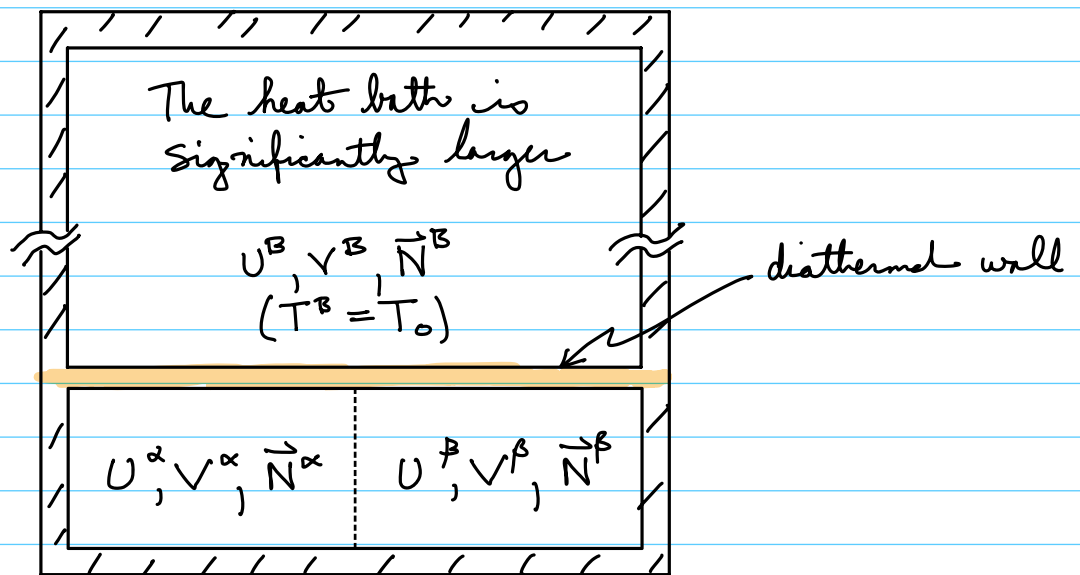 The heat bath is
significantly larger
Uᴮ, Vᴮ, N⃗ᴮ
(Tᴮ = T₀)
diathermal wall
Uᵅ, Vᵅ, N⃗ᵅ
Uᵝ, Vᵝ, N⃗ᵝ